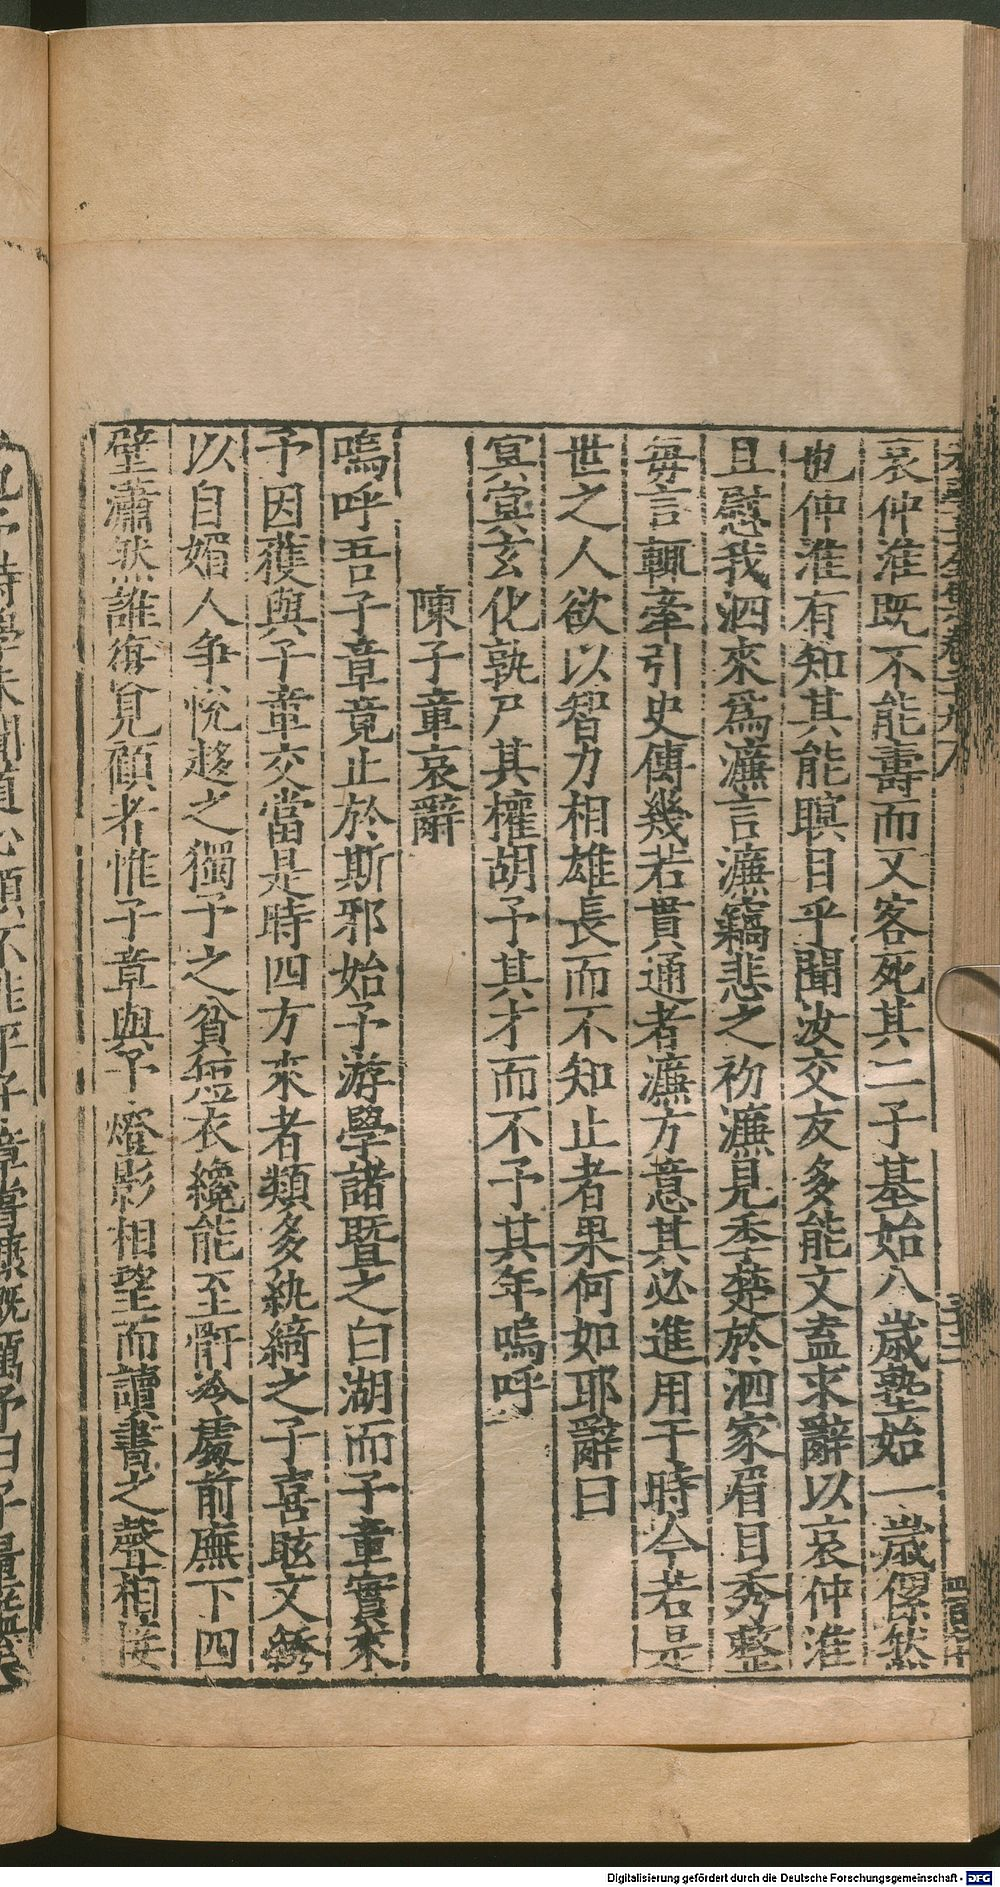 哀仲淮既不能壽而又客死其二子基始八歲塾始一歲傫然
也仲淮有知其能瞑目乎聞汝交友多能文盍求辭以哀仲淮
且慰我泗來爲濂言濂竊悲之初濂見季楚於泗家眉目秀整
每言輒牽引史傳幾若貫通者濂方意其必進用于時今若是
世之人欲以智力相雄長而不知止者果何如耶辭曰
冥冥玄化孰尸其權胡予其才而不予其年嗚呼
陳子章哀辭
嗚呼吾子章竟止於斯邪始予游學諸暨之白湖而子章實來
予因獲與子章交當是時四方來者類多紈綺之子喜眩文綉
以自媚人爭悅趍之獨予之貧短衣纔能至骭冷處前廡下四
壁蕭然誰復冐顧者惟子章與予燈影相望而讀書之聲相接
Digitalisierung gefördert durch die Deutsche Forschungsgemeinschaft - DFG